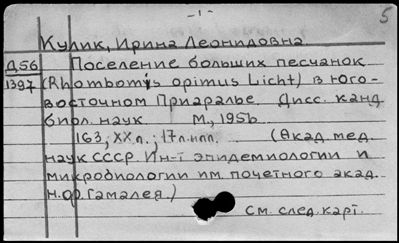 -1-
5
Кулик, Ирина Леонидовна
Д56 Поселение больших песчанок
1397 (Rhombomys opimus Licht) в юго-
восточном Приаралье. Дисс. канд
биол. наук М., 1956
163, XX л.; 17 л. илл. (Акад. мед.
наук СССР. Ин-т эпидемиологии и
микробиологии им. почетного акад.
Н.Ф. Гамалея.)
См. след. карт.